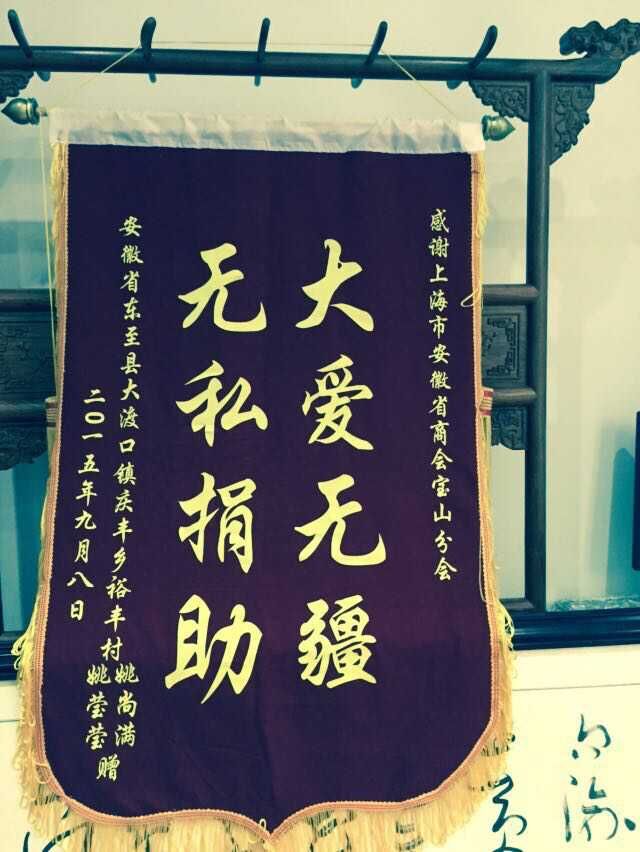 感谢上海市安徽省商会宝山分会
大爱无疆
无私捐助
安徽省东至县大渡口镇庆丰乡裕丰村姚尚满
姚莹莹赠
二〇一五年九月八日